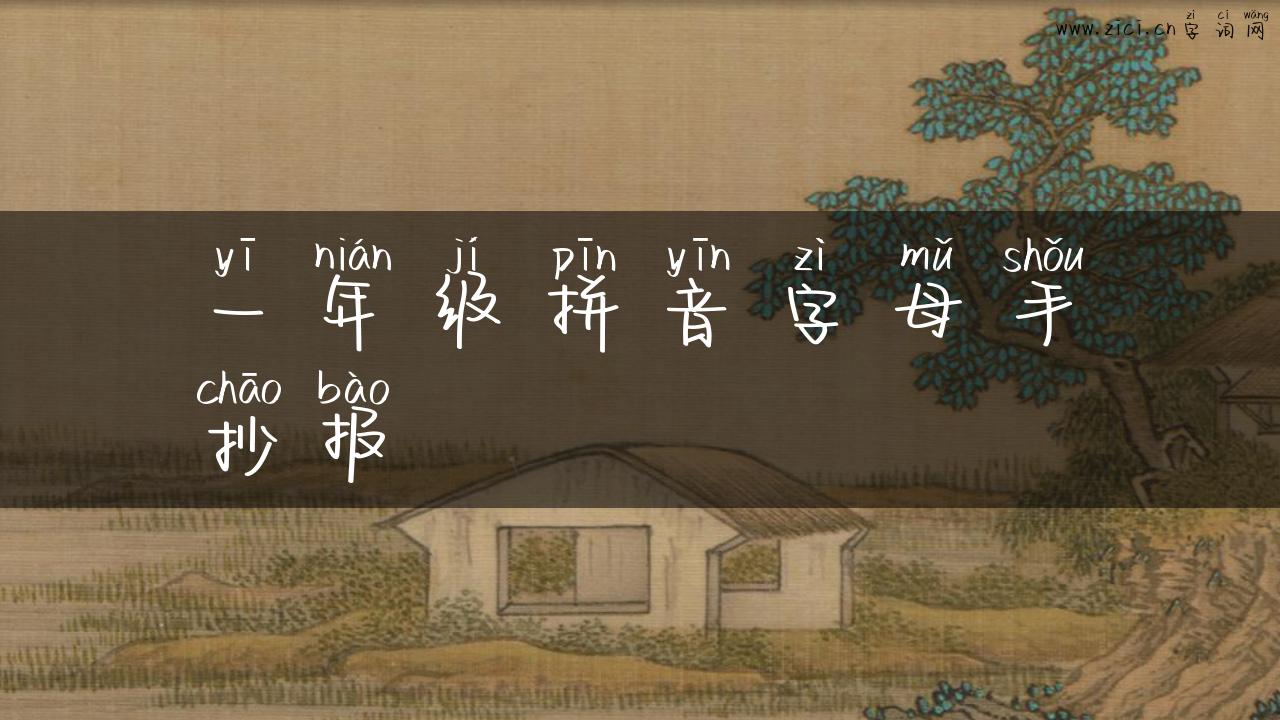 zì cí wǎng
www.zici.cn字词网
yī nián jí pīn yīn zì mǔ shǒu
一年级拼音字母手
chāo bào
抄报